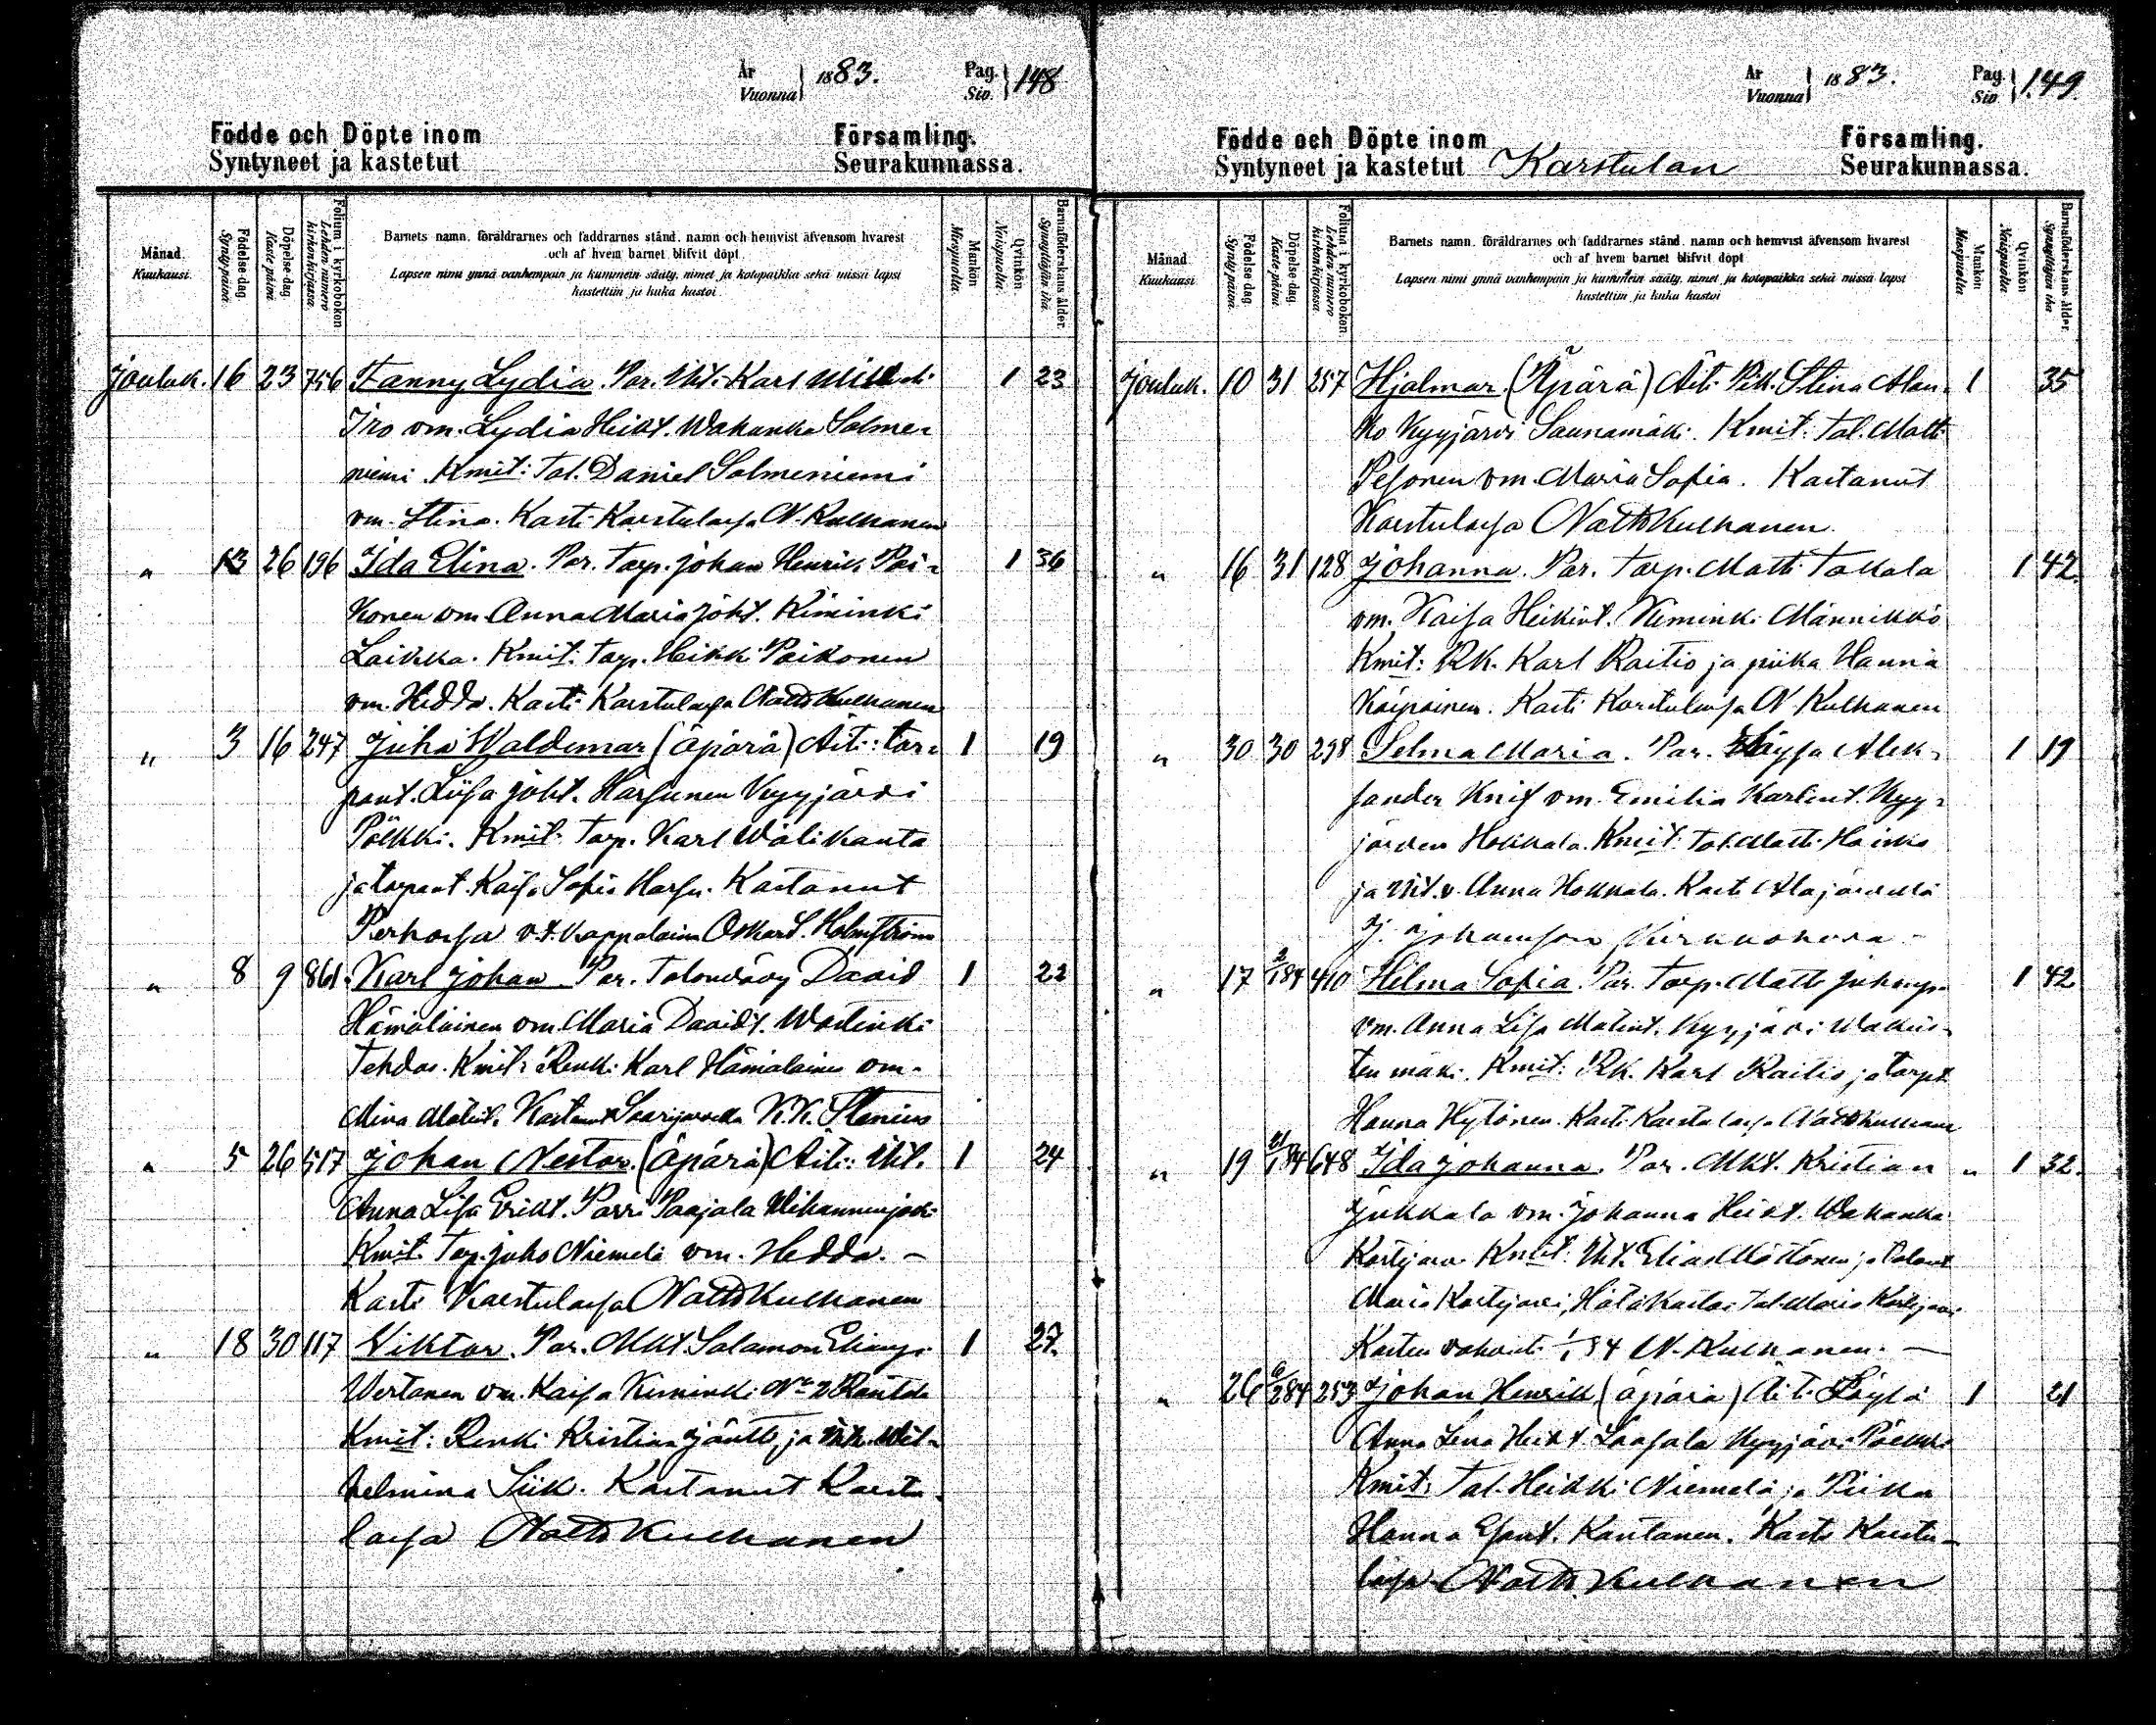 År Vuonna 1883. Pag. Siv. 148
Födde och Döpte inom Församling.
Syntyneet ja kastetut Seurakunnassa.
Månad Kuukausi
Födelse dag Synty päivä
Döpelse dag Kaste päivä
Folium i kyrkobokon Lehden numero kirkonkirjassa
Barnets namn, föräldrarnes och faddrarnes stånd, namn och hemvist äfvensom hvarest
och af hvem barnet blifvit döpt.
Lapsen nimi ynnä vanhempain ja kummein sääty, nimet ja kotopaikka sekä missä lapsi
kastettiin ja kuka kastoi
Mankön Miespuolta
Qvinkön Naispuolta
Barnaföderskans ålder. Synnyttäjän ikä
Jouluk. 16 23 756 Fanny Lydia. Par. Itl. Karl 1 23
Iro vm. Lydia Heikt. Wahanka Salme-
niemi. Kmit: Tal. Daniel Salmeniemi
vm. Stina. Kasti Karstulassa N. Kulhanen
" 13 26 196 Ida Elina. Par. Torp. Johan Henrik Pai- 1 36
konen vm. Anna Maria Joht. Kiminki
Laikka. Kmit: Torp. Heikki Paikonen
vm. Hedda. Kasti Karstulassa Natti Kulhanen
" 3 16 247 Juha Waldemar (Äpärä) Äiti: tor- 1 19
pant. Liisa Joht. Harsunen Kyyjärvi
Pölkki. Kmit: Torp. Karl Wälikanta
ja torpant. Kaisa Sofia Harsu. Kastanut
Perhossa v.t. Kappalainen Oskar S. Holmström
" 8 9 861. Karl Johan Par. Talonväv David 1 22
Hämäläinen vm. Maria Davidt. Wastinki
Tehdas. Kmit: Renki Karl Hämäläinen vm.
Mina Matint. Kastanut Saarijärvellä K.K. Stenius
" 5 26 517 Johan Nestor. (Äpärä) Äiti: Itl. 1 24
Anna Lisa Erikt. Parri Paajala Mihanninjoki
Kmit. Torp. Juho Niemelä vm. Hedda. –
Kasti Karstulassa Natti Kulhanen
" 18 30 117 Viktor. Par. Mkt. Salamon Eliaanp. 1 27.
Wertanen vm. Kaisa Kiminki No 2 Rantala
Kmit: Renki Kristian Jäntti, ja Wil-
helmina Siik. Kastanut Karstu-
lassa Natti Kulhanen
År Vuonna 1883. Pag. Siv. 149.
Födde och Döpte inom Församling.
Syntyneet ja kastetut Karstulan Seurakunnassa.
Månad Kuukausi
Födelse dag Synty päivä
Döpelse dag. Kaste päivä
Folium i kyrkobokon. Lehden numero kirkonkirjassa
Barnets namn, föräldrarnes och faddrarnes stånd, namn och hemvist äfvensom hvarest
och af hvem barnet blifvit döpt
Lapsen nimi ynnä vanhempain ja kummein sääty, nimet ja kotopaikka sekä missä lapsi
kastettiin ja kuka kastoi
Mankön Miespuolta
Qvinkön Naispuolta
Barnaföderskans ålder. Synnyttäjän ikä
Jouluk. 10 31 257 Hjalmar. (Äpärä) Äiti Piik. Stina Alan- 1 35
ko Kyyjärvi Saunamäki. Kmit: Tal. Matti
Pesonen vm. Maria Sofia. Kastanut
Karstulassa Natti Kulhanen.
" 16 31 128 Johanna. Par. Torp. Matti Takala 1 42.
vm. Kaisa Heikint. Kiminki Männikkö
Kmit: RK. Karl Raitio ja piika Hanna
Käipäinen. Kasti Karstulassa N Kulhanen
" 30 30 298 Selma Maria. Par. Alek- 1 19
sander Knif vm. Emilia Karlint. Kyy-
järven Hokkala. Kmit: Tal. Matti
ja Itl. v. Anna Hokkala. Kasti Alajärvellä
J. Johansson Kirkkoherra –
" 17 2/1 84 410 Hilma Sofia. Par. Torp. Matti Juhanp. 1 42
vm. Anna Lisa Matint. Kyyjärvi
ten mäki. Kmit: RK. Karl Raitio ja torpt.
Hanna Hytönen. Kasti Karstulassa Natti Kulhanen
" 19 21/1 84 648 Ida Johanna. Par. Mkt. Kristian " 1 32.
Jukkala vm. Johanna Heikt. Wahanka
Kortejärvi Kmit: Itl. Elias Möttönen ja talont.
Maria Kortejärvi, Hätäkastoi Tal. Maria Kortejärvi
Kasteen vahvisti 1/1 84 N. Kulhanen. –
" 26 6/2 84 253 Johan Henrik (äpärä) Äiti 1 21
Anna Lena Heikt. Laasala Kyyjärvi Pölkki
Kmit: Tal. Heikki Niemelä ja Piika
Hanna Esant. Kautanen. Kasti Karstu-
lassa. Natti Kulhanen